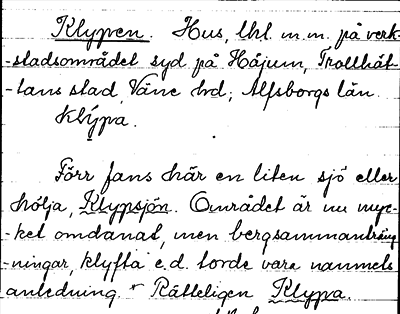 Klyppen. Hus, lht m.m. på verk-
-stadsområdet syd på Håjum, Trollhät-
-tans stad, Väne hd; Älfsborgs län.
klýpa.
Förr fans här en liten sjö eller
hölja, Klypsjön. Området är nu myc-
-ket omdanat, men bergsammanträng-
-ningar, klyfta e.d. torde vara namnets
anledning. * Rätteligen Klypa.